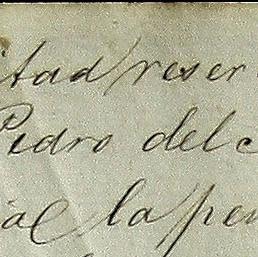 itad reser
Pedro del c
al la pen